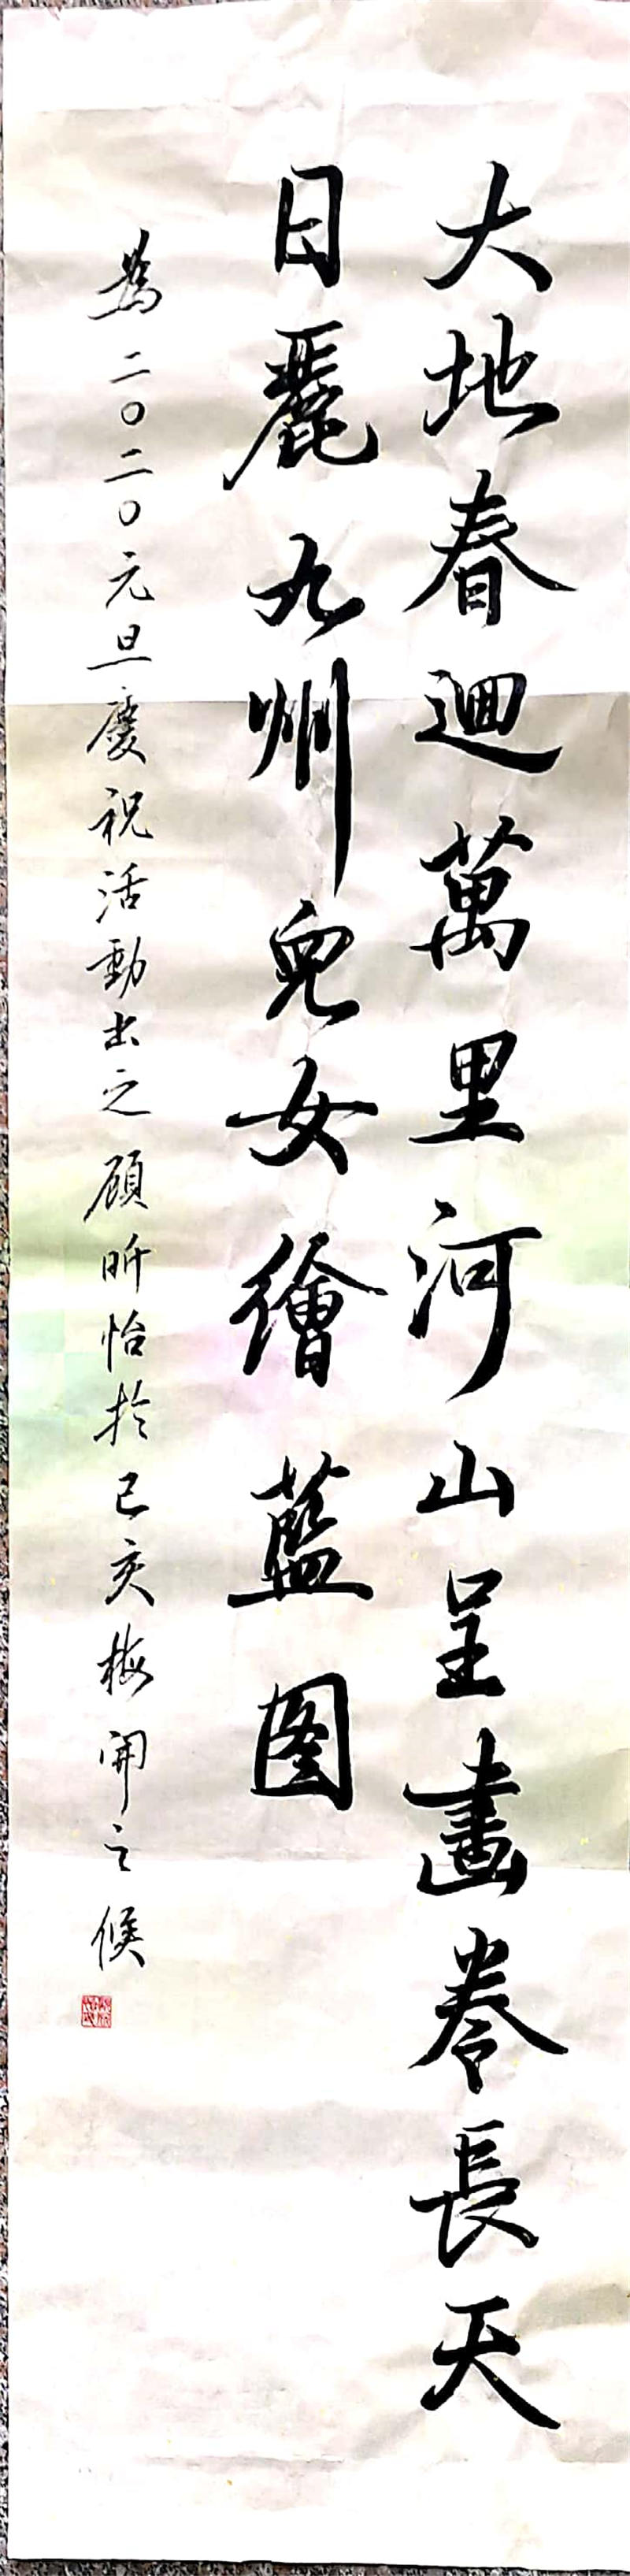 大地春迴萬里河山呈畫卷長天
日麗九州兒女繪藍图
為二〇二〇元旦慶祝活動出之顧昕怡於己亥梅開之候